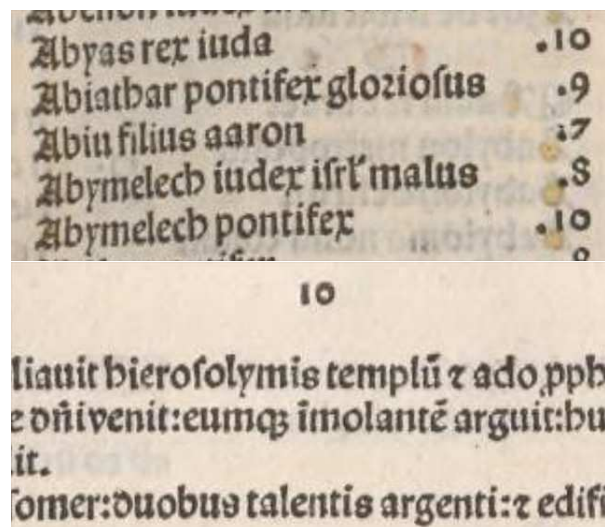 Abyas rex iuda .10
Abiathar pontifex gloriosus .9
Abiu filius aaron .7
Abymelech iudex isrl' malus .8
Abymelech pontifex .10
10
liauit hierosolymis templū ⁊ ado
e dn̄i venit:eumqꝫ īmolantē arguit:bu
it.
somer:duobus talentis argenti:⁊ edifi